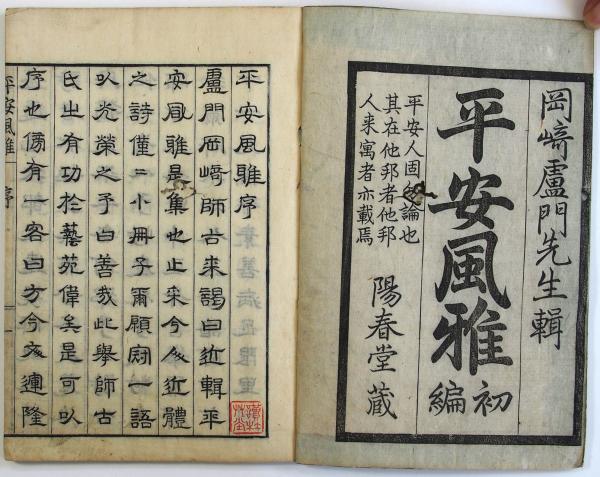 岡﨑盧門先生輯
平安風雅
初編
平安人固論也
其在他邦者他邦
人来寓者亦載焉
陽春堂蔵
平安風雅序
盧門岡﨑師古来謁曰近輯平
安風雅是集也止采今近體
之詩僅二小冊子爾願冠一語
以光榮之予曰善哉此舉師古
氏之有功於藝苑偉矣是可以
序也傍有一客曰方今文運隆
平安風雅
序